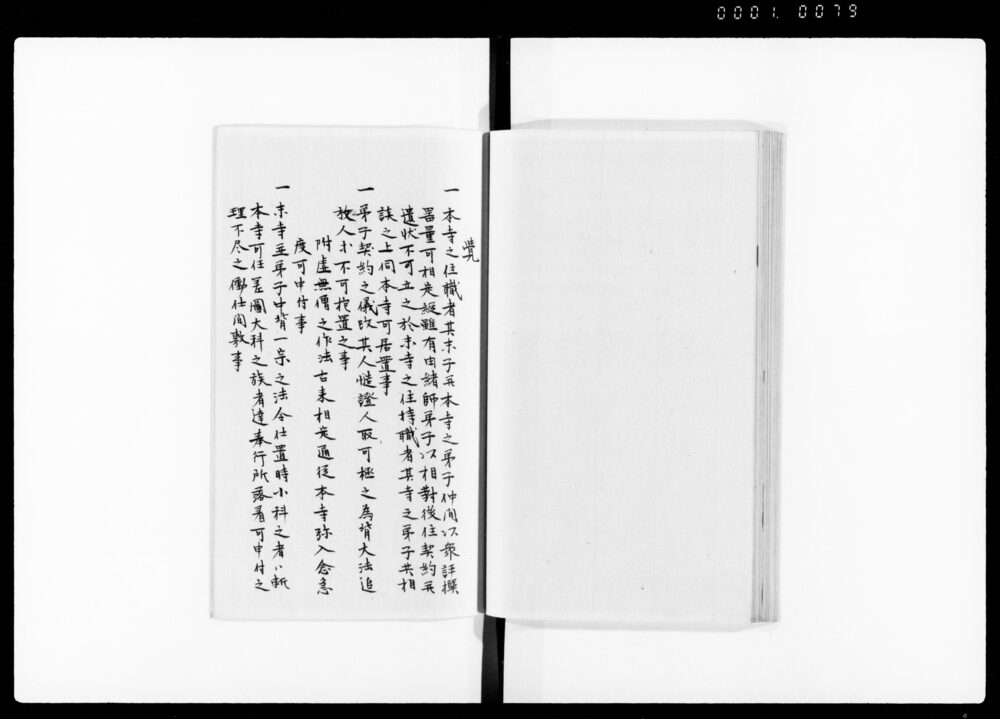 0001.0079
覚
一本寺之住職者其末子并本寺之弟子仲間以衆評撰
器量可相定縦雖有由緒師弟子以相對後住契約并
遺状不可立之於末寺之住持職者其寺之弟子共相
談之上伺本寺可居置事
一弟子契約之儀改其人慥證人取可極之為背大法追
放人求不可抱置之事
附虚無僧之作法古来相定通従本寺弥入念急
度可申付事
一末寺并弟子中背一宗之法令仕置時小科之者ハ断
本寺可任差圖大科之族者達奉行所落着可申付之
理不尽之働仕間敷事